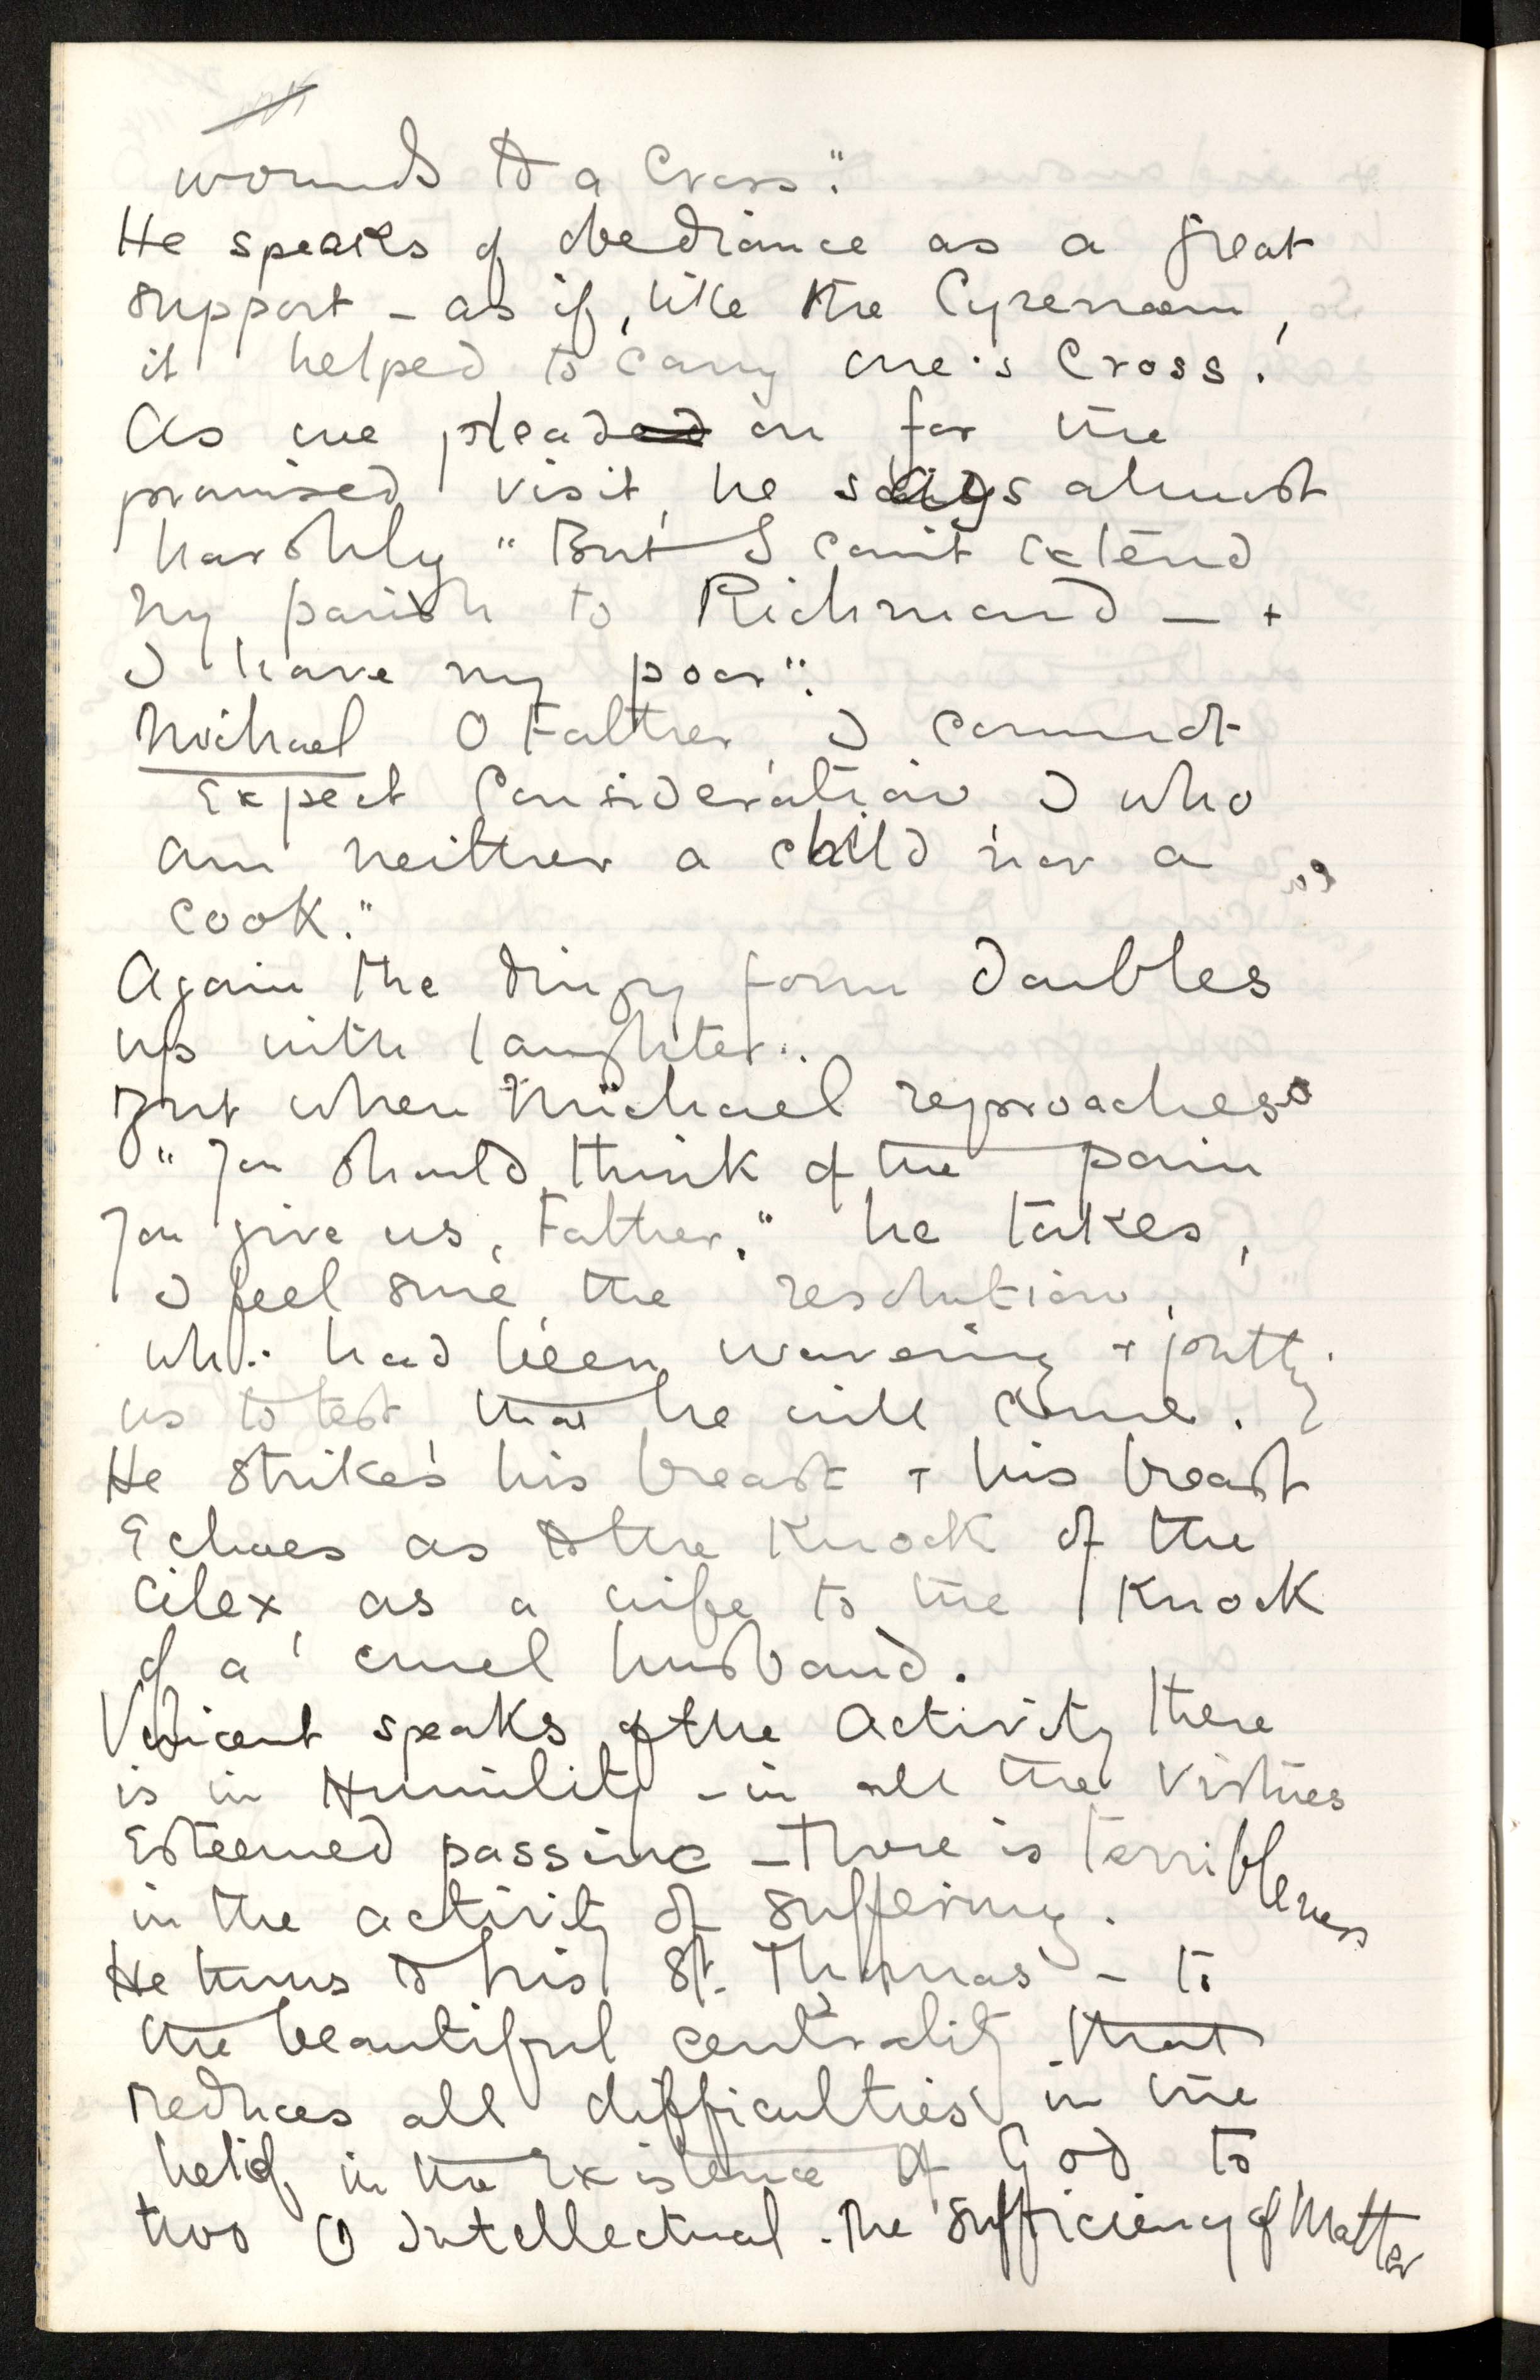 wounds to a Cross."
He speaks of obediance as a great
support - as if, like the Cyrenaean,
it helped to carry one's Cross.
As we plead on for the
promised visit, he says almost
harshly "But I can't extend
my parish to Richmond — +
I have my poor".
Michael O Father, I cannot
Expect Consideration, I who
am neither a child nor a
cook."
Again the dingy form doubles
up with laughter..
But when Michael reproaches
"You should think of the pain
You give us, Father." he takes,
I feel sure, the resolution,
wh. had been wavering + putty
us to test, that he will come.
He strikes his breast + his breast
Echoes as to the Knock of the
Cilex, as a wife to the Knock
of a cruel husband.
Vincent speaks of the Activity there
is in Humility - in all the Virtues
Esteemed passive - there is terribleness
in the activity of suffering.
He turns to his St. Thomas - to
the beautiful centrality that
reduces all difficulties in the
belief in the Existence of God to
two (1) Intellectual - The Sufficiency of Matter